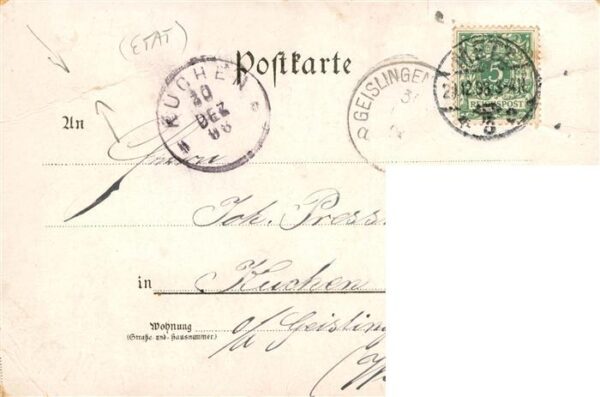 (ETAT)
Postkarte
KUCHEN
30
DEZ
98
GEISLINGEN
METZ
29.12.98.3-4N.
5
REICHSPOST
An
Herrn
Joh. Press
in
Kuchen
Wohnung
(Straße und Hausnummer)
o/a Geisling
(W